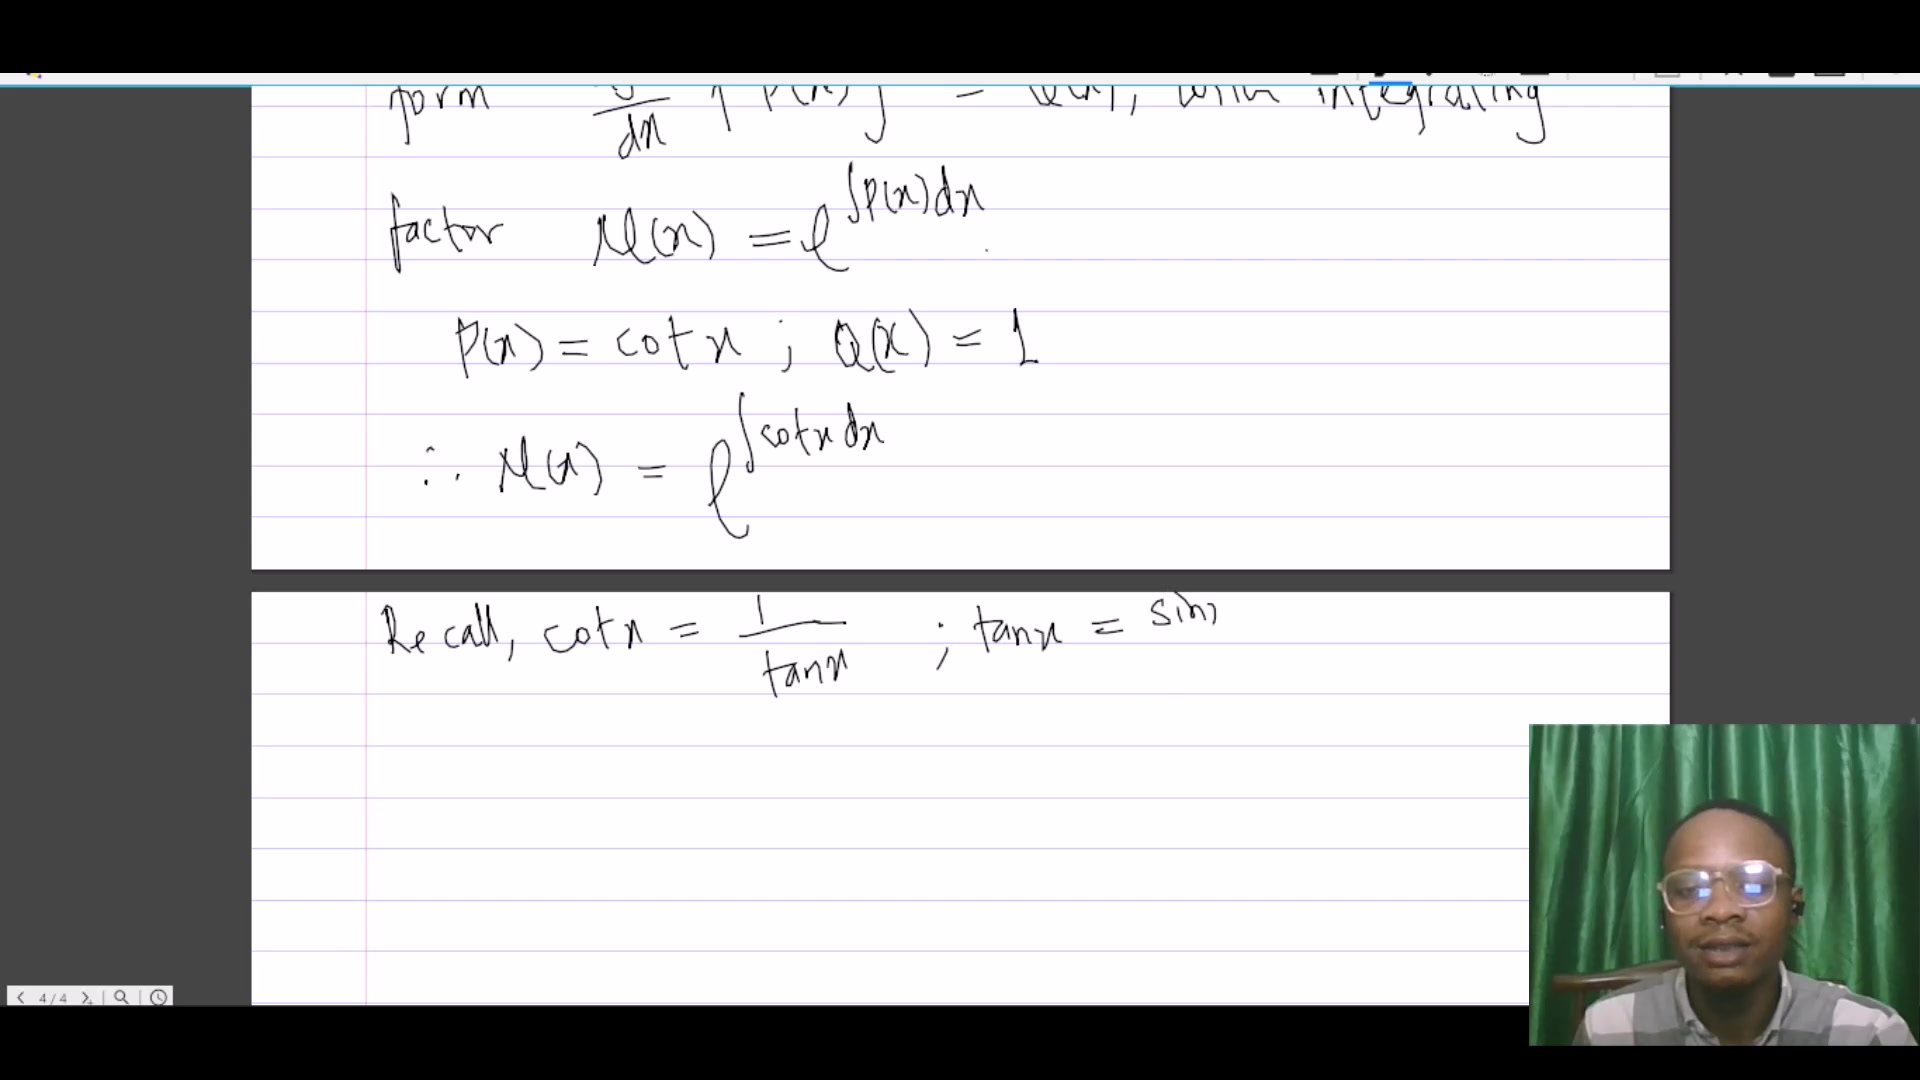 form dy/dx + P(x)y = Q(x), with integrating
factor μ(x) = e^∫P(x)dx
P(x) = cotx ; Q(x) = 1
∴ μ(x) = e^∫cotxdx
Recall, cotx = 1/tanx ; tanx = sin
4/4